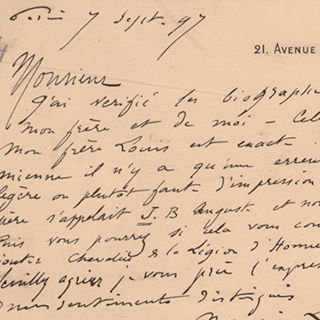 7 Sept. 97
21. AVENUE
Monsieur
J'ai verifié les biographe
mon frère et de moi - Cel
mon frère Louis est exact
mienne il n'y a qu'une erreu
légère ou plutôt faute d'impression
père s'appelait J. B Auguste et no
Puis vous pourrez si cela vous con
jouter Chevalier de la Légion d'Honne
euillez agréer je vous prie l'expres
mes sentiments distingués